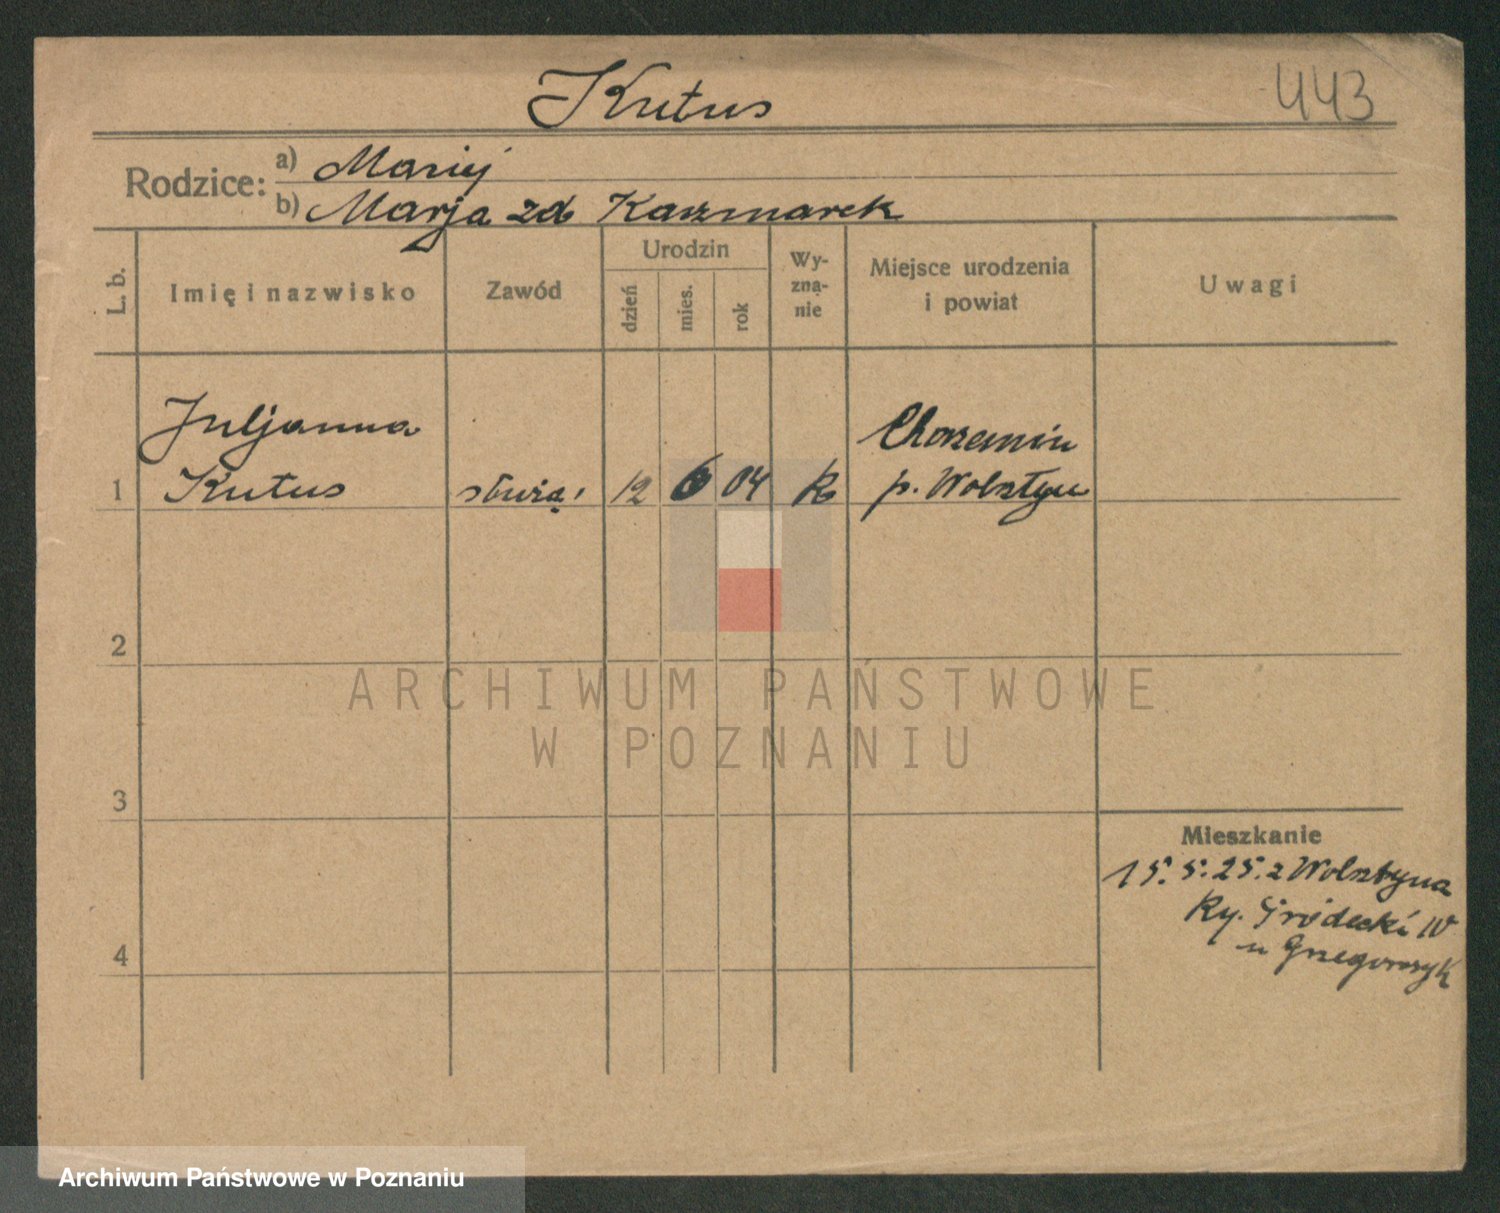 Kutus
443
Rodzice:
a) Maciej
b) Marja zd Kaczmarek
L. b.
Imię i nazwisko
Zawód
Urodzin
dzień
mies.
rok
Wy-
zna-
nie
Miejsce urodzenia
i powiat
Uwagi
Juljanna
Chorzemin
1 Kutus służą. 12 6 04 k p. Wolsztyn
2
ARCHIWUM PAŃSTWOWE
W POZNANIU
3
Mieszkanie
15. 5. 25. z Wolsztyna
Ry. Gródecki IV
u Grzegorczyk
4
Archiwum Państwowe w Poznaniu